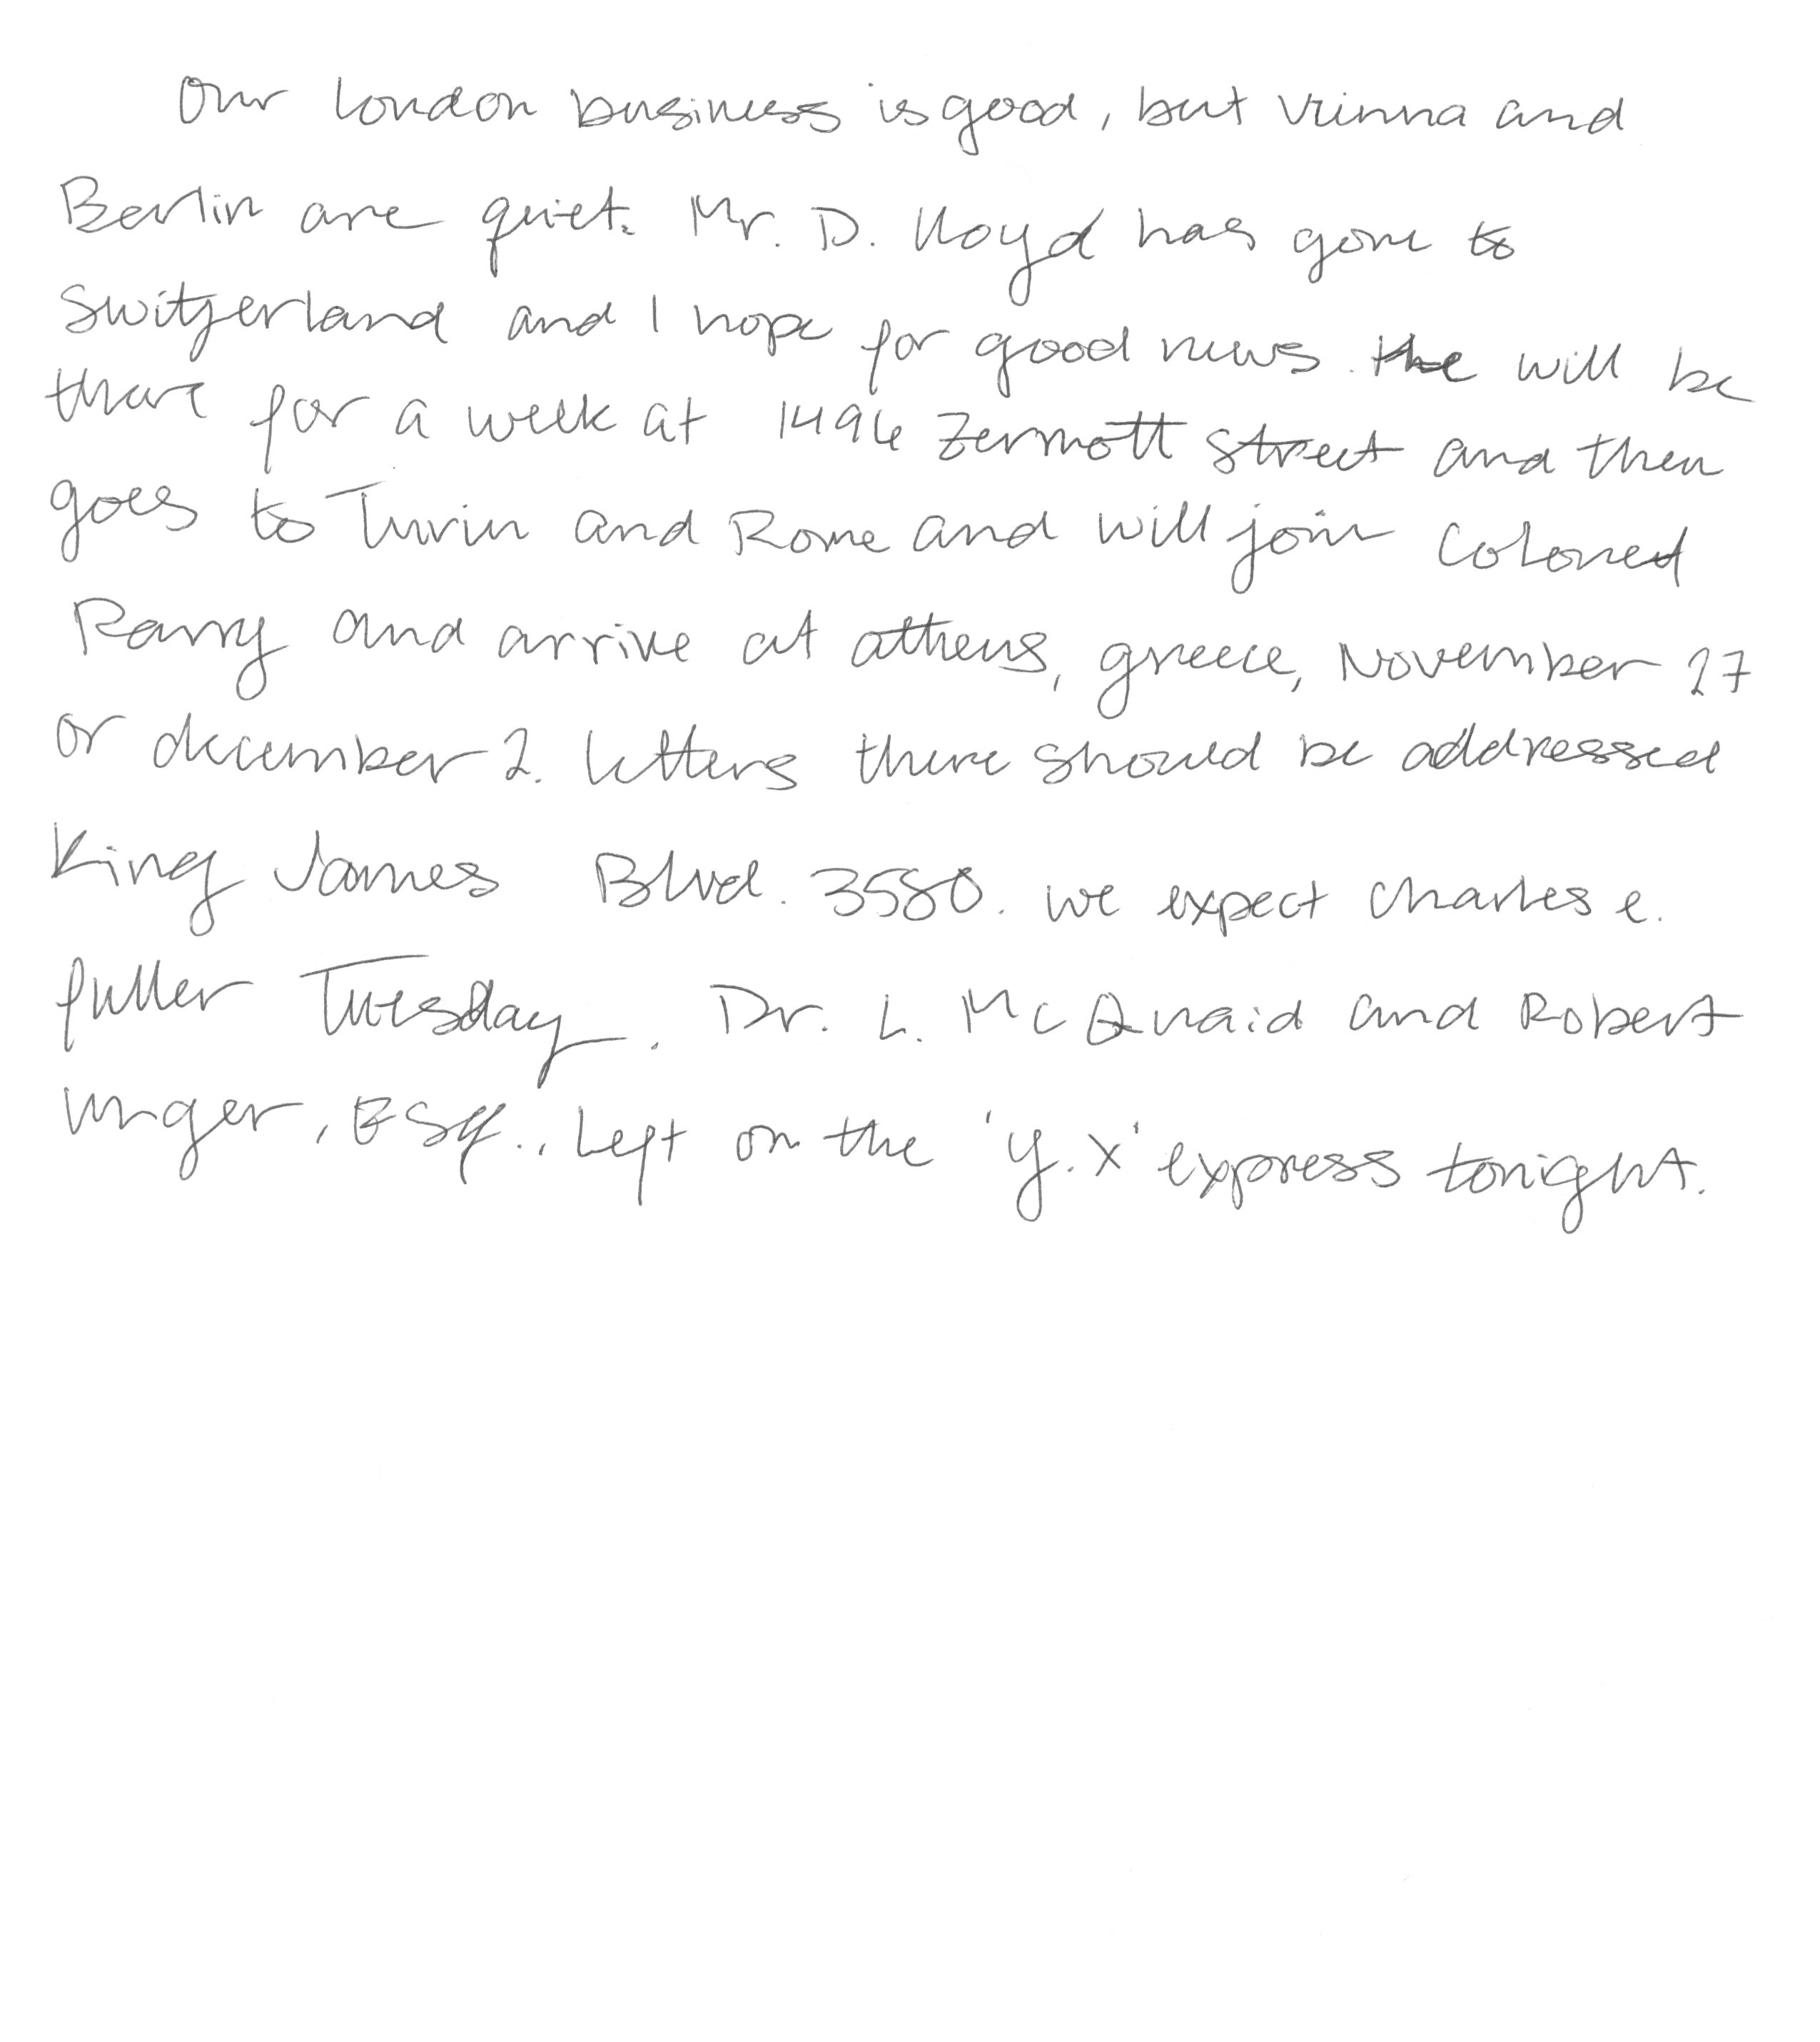 Our london business is good, but vienna and
Berlin are quiet. Mr. D. lloyd has gone to
switzerland and I hope for good news. He will be
there for a week at 1496 zermott street and then
goes to Turin and Rome and will join Coloned
Parry and arrive at athens, greece, November 27
or december 2. letters there should be addressed
King James Blvd. 3580. we expect charles e.
fuller Tuesday. Dr. L. McQuaid and Robert
unger, Esq., left on the 'y.x' express tonight.